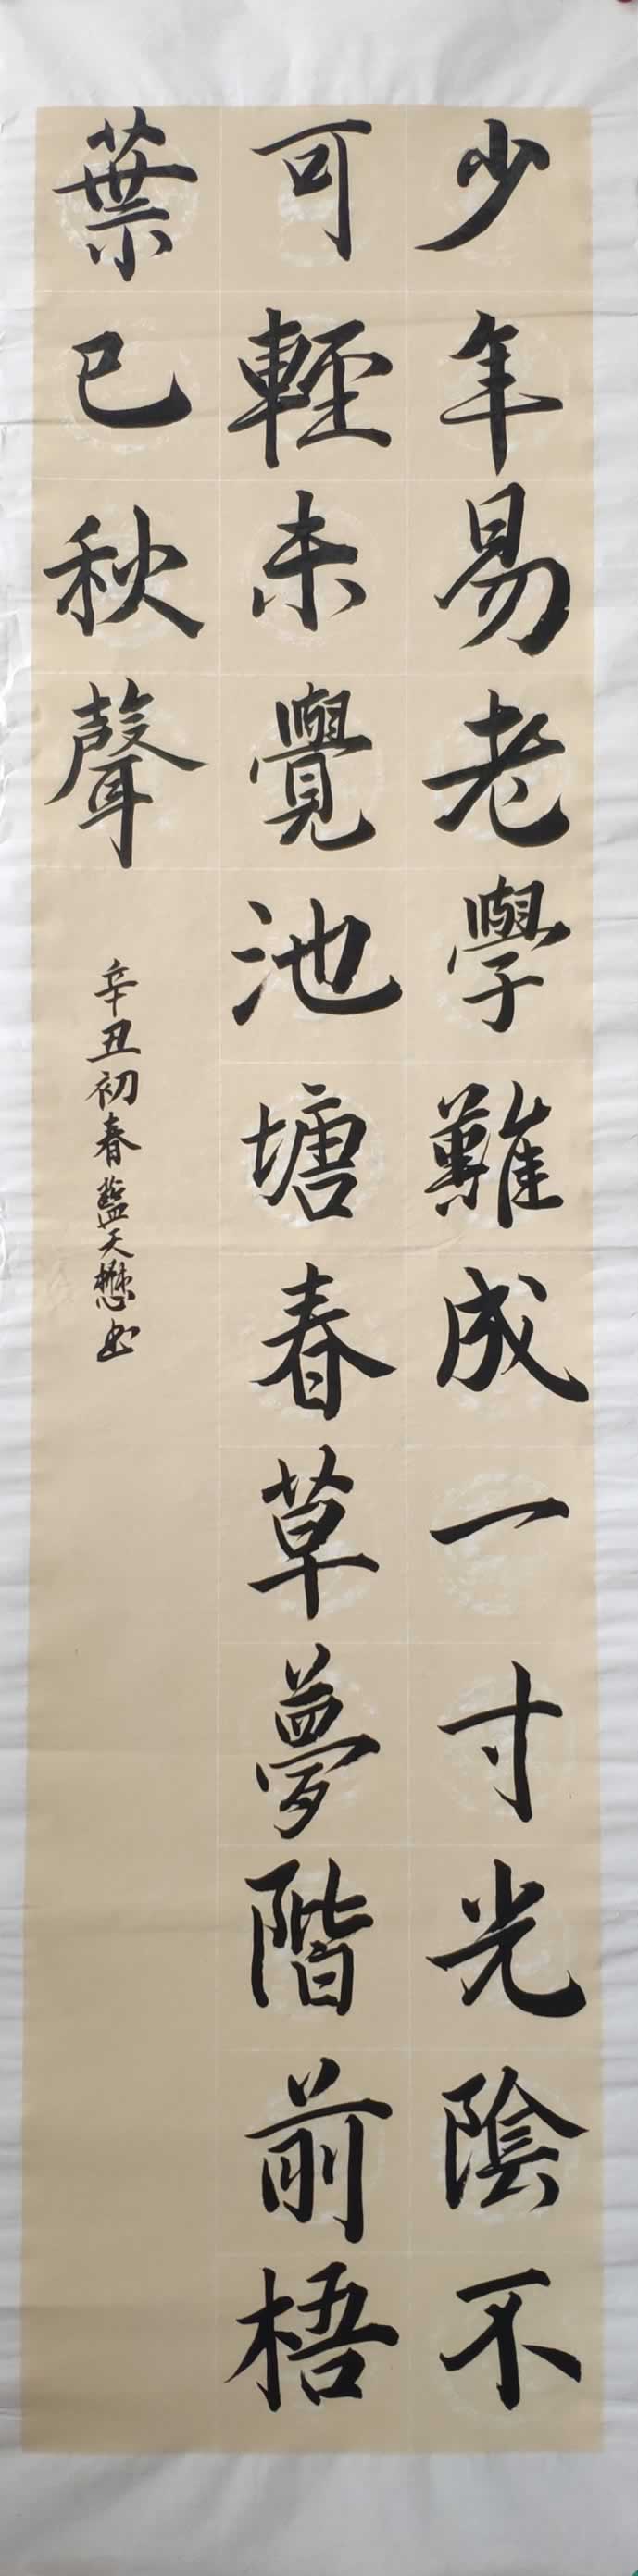 少年易老學難成一寸光陰不
可輕未覺池塘春草夢階前梧
葉已秋聲
辛丑初春藍天懋书